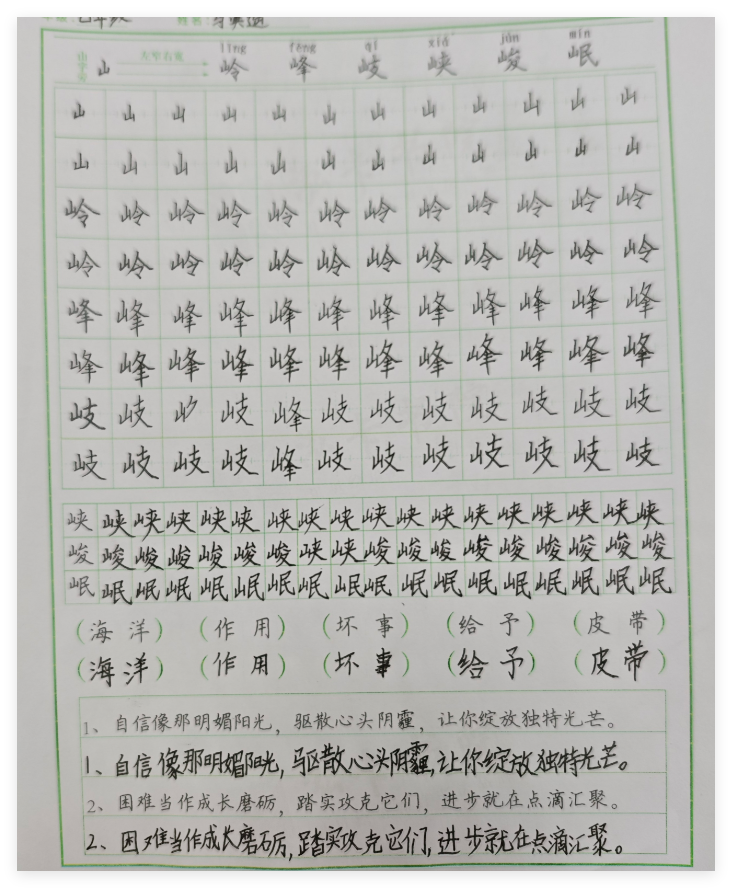 líng fēng qí xiá jùn mín
山 岭 峰 岐 峡 峻 岷
山 山 山 山 山 山 山 山 山 山 山 山
山 山 山 山 山 山 山 山 山 山 山 山
岭 岭 岭 岭 岭 岭 岭 岭 岭 岭 岭 岭
岭 岭 岭 岭 岭 岭 岭 岭 岭 岭 岭 岭
峰 峰 峰 峰 峰 峰 峰 峰 峰 峰 峰 峰
峰 峰 峰 峰 峰 峰 峰 峰 峰 峰 峰 峰
岐 岐 岐 峰 岐 岐 岐 岐 岐 岐 岐
岐 岐 岐 岐 峰 岐 岐 岐 岐 岐 岐 岐
峡 峡 峡 峡 峡 峡 峡 峡 峡 峡 峡 峡 峡 峡 峡 峡 峡 峡
峻 峻 峻 峻 峻 峻 峻 峡 峡 峻 峻 峻 峻 峻 峻 峻 峻 峻
岷 岷 岷 岷 岷 岷 岷 岷 岷 岷 岷 岷 岷 岷 岷 岷 岷 岷
（海 洋） （作 用） （坏 事） （给 予） （皮 带）
（海 洋） （作 用） （坏 事） （给 予） （皮 带）
1、自信像那明媚阳光，驱散心头阴霾，让你绽放独特光芒。
1、自信像那明媚阳光，驱散心头阴霾，让你绽放独特光芒。
2、困难当作成长磨砺，踏实攻克它们，进步就在点滴汇聚。
2、困难当作成长磨砺，踏实攻克它们，进步就在点滴汇聚。